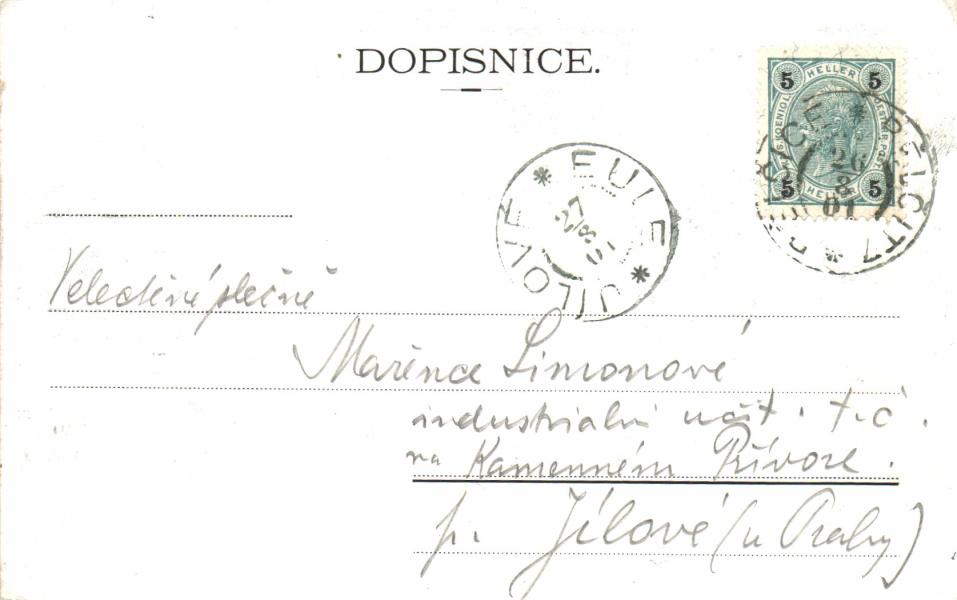 DOPISNICE.
5 HELLER 5
5 HELLER 5
26
8
01
EULE * JÍLOVÉ *
27/8 01
Velectěné slečně
Mařence Šimonové
industrialní učit. t.č.
na Kamenném Přívoze.
p. Jílové (u Prahy)